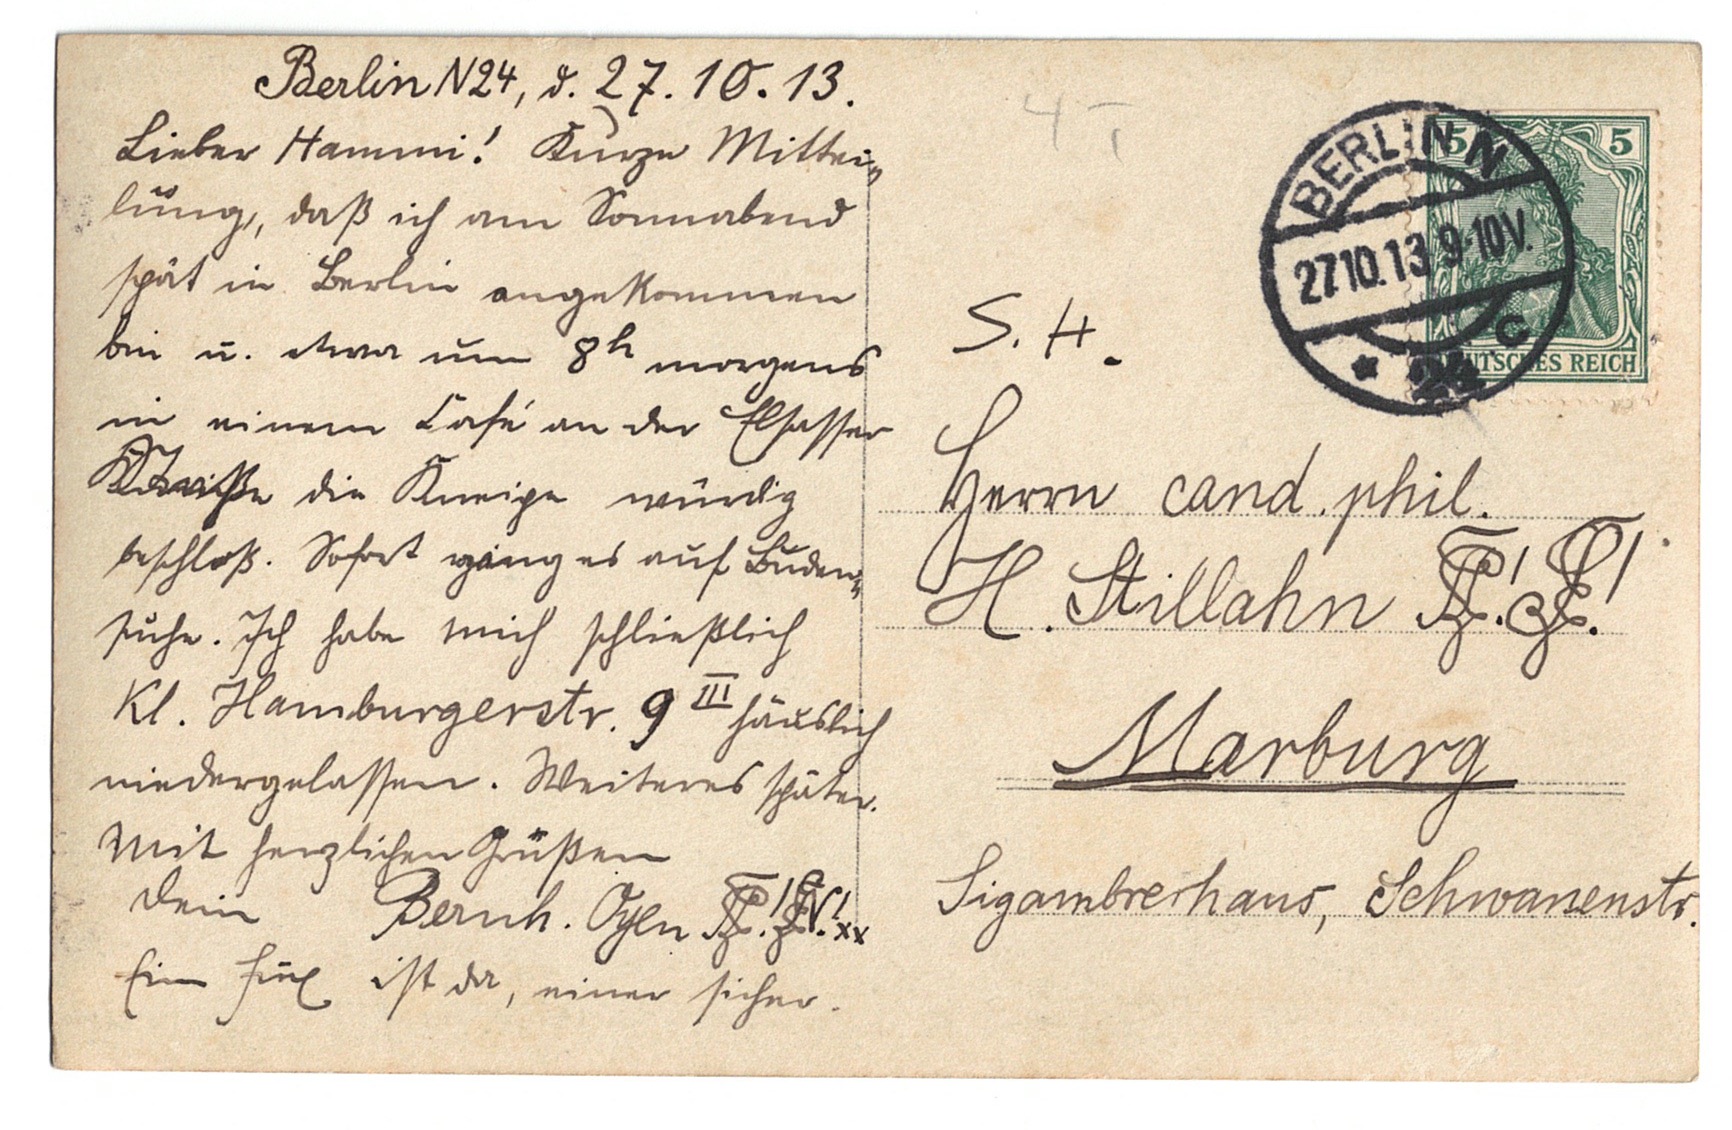 Berlin N24, d. 27.10.13.
Lieber Hammi! Kurze Mittei-
lung, daß ich am Sonnabend
spät in Berlin angekommen
bin u. etwa um 8h morgens
in einem Café an der Elsasser
Straße die Kneipe würdig
beschloß. Sofort ging es auf Buden-
suche. Ich habe mich schließlich
Kl. Hamburgerstr. 9 III häuslich
niedergelassen. Weiteres später.
Mit herzlichen Grüßen
Dein Bernh. Oyen xx
Ein Fux ist da, einer sicher.
4 T
BERLIN N
27.10.13 9-10V.
* 24 C
5 5
DEUTSCHES REICH
S. H.
Herrn cand. phil.
H. Stillahn
Marburg
Sigambrerhaus, Schwanenstr.